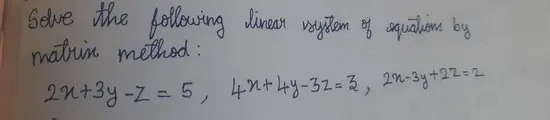 Solve the following linear system of equations by
matrix method:
2x+3y-z = 5, 4x+4y-3z=3, 2x-3y+2z=2